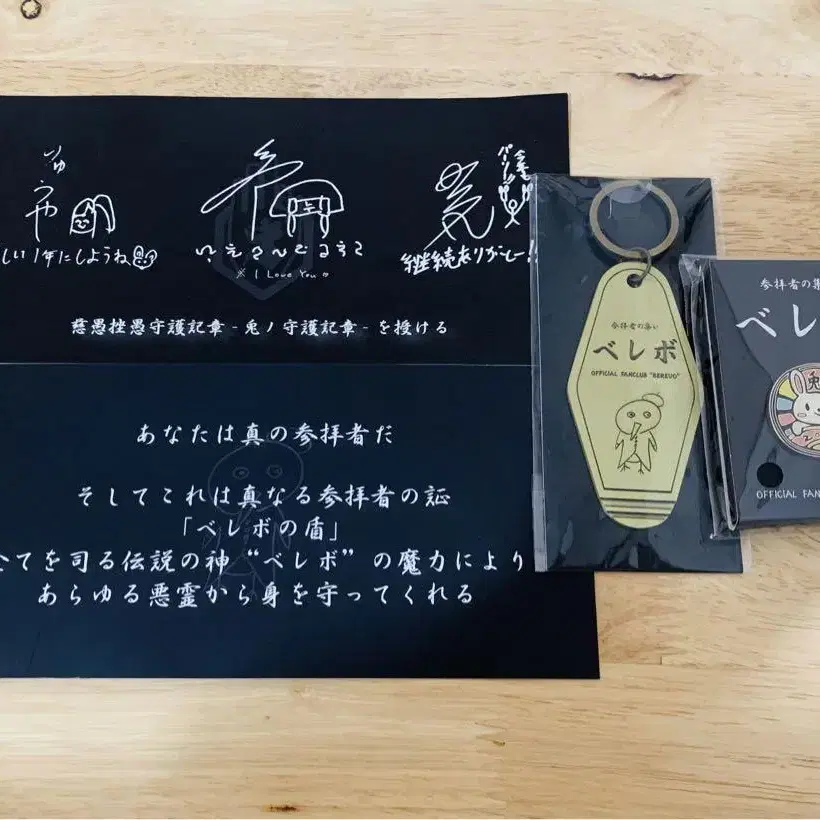 しい1年にしようね
※ I Love You
継続ありがとー!!
慈愚挫愚守護記章 - 兎ノ守護記章 - を授ける
あなたは真の参拝者だ
そしてこれは真なる参拝者の証
「ベレボの盾」
全てを司る伝説の神 “ベレボ” の魔力により
あらゆる悪霊から身を守ってくれる
参拝者の集い
ベレボ
OFFICIAL FANCLUB "BEREVO"
参拝者の集
ベレ
兎
OFFICIAL FAN